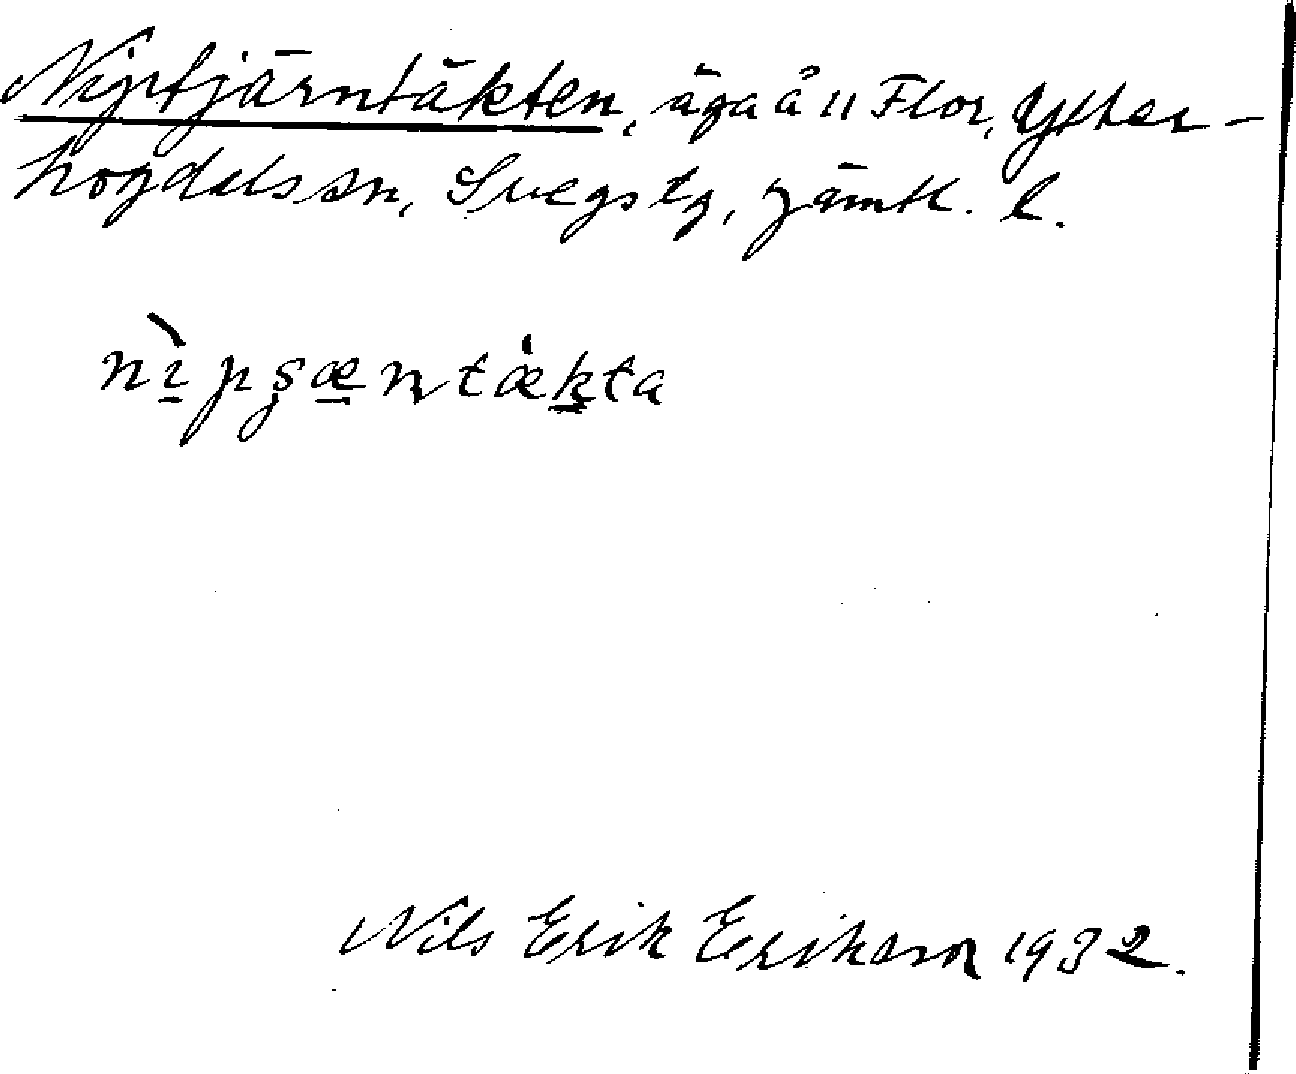 Niptjärntäkten, äga å 11 Flor, Ytter-
hogdals sn, Svegs tg, Jämtl. l.
nı̀pşæntǽkta
Nils Erik Erikson 1932.